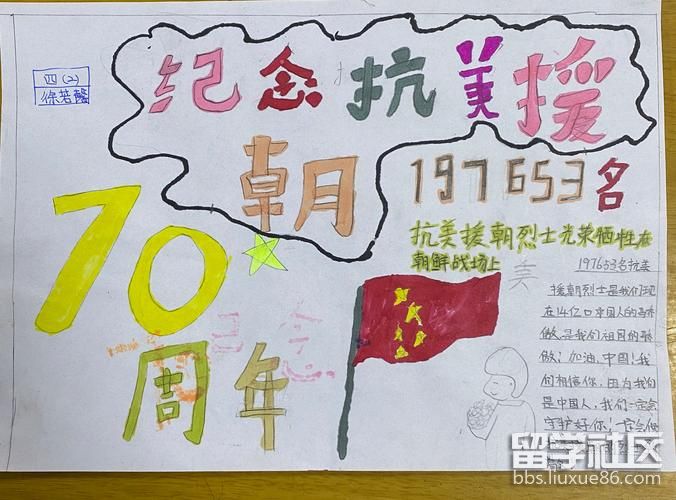 四(2)
徐若馨
纪念抗美援
朝
197653名
抗美援朝烈士光荣牺牲在
朝鲜战场上
美
70
纪念
周年
197653名抗美
援朝烈士是我们现
在14亿口中国人的骄
傲,是我们祖国的骄
傲!加油,中国!我
们相信你,因为我们
是中国人,我们一定会
守护好你!一定会保
留学社区
bbs.liuxue86.com